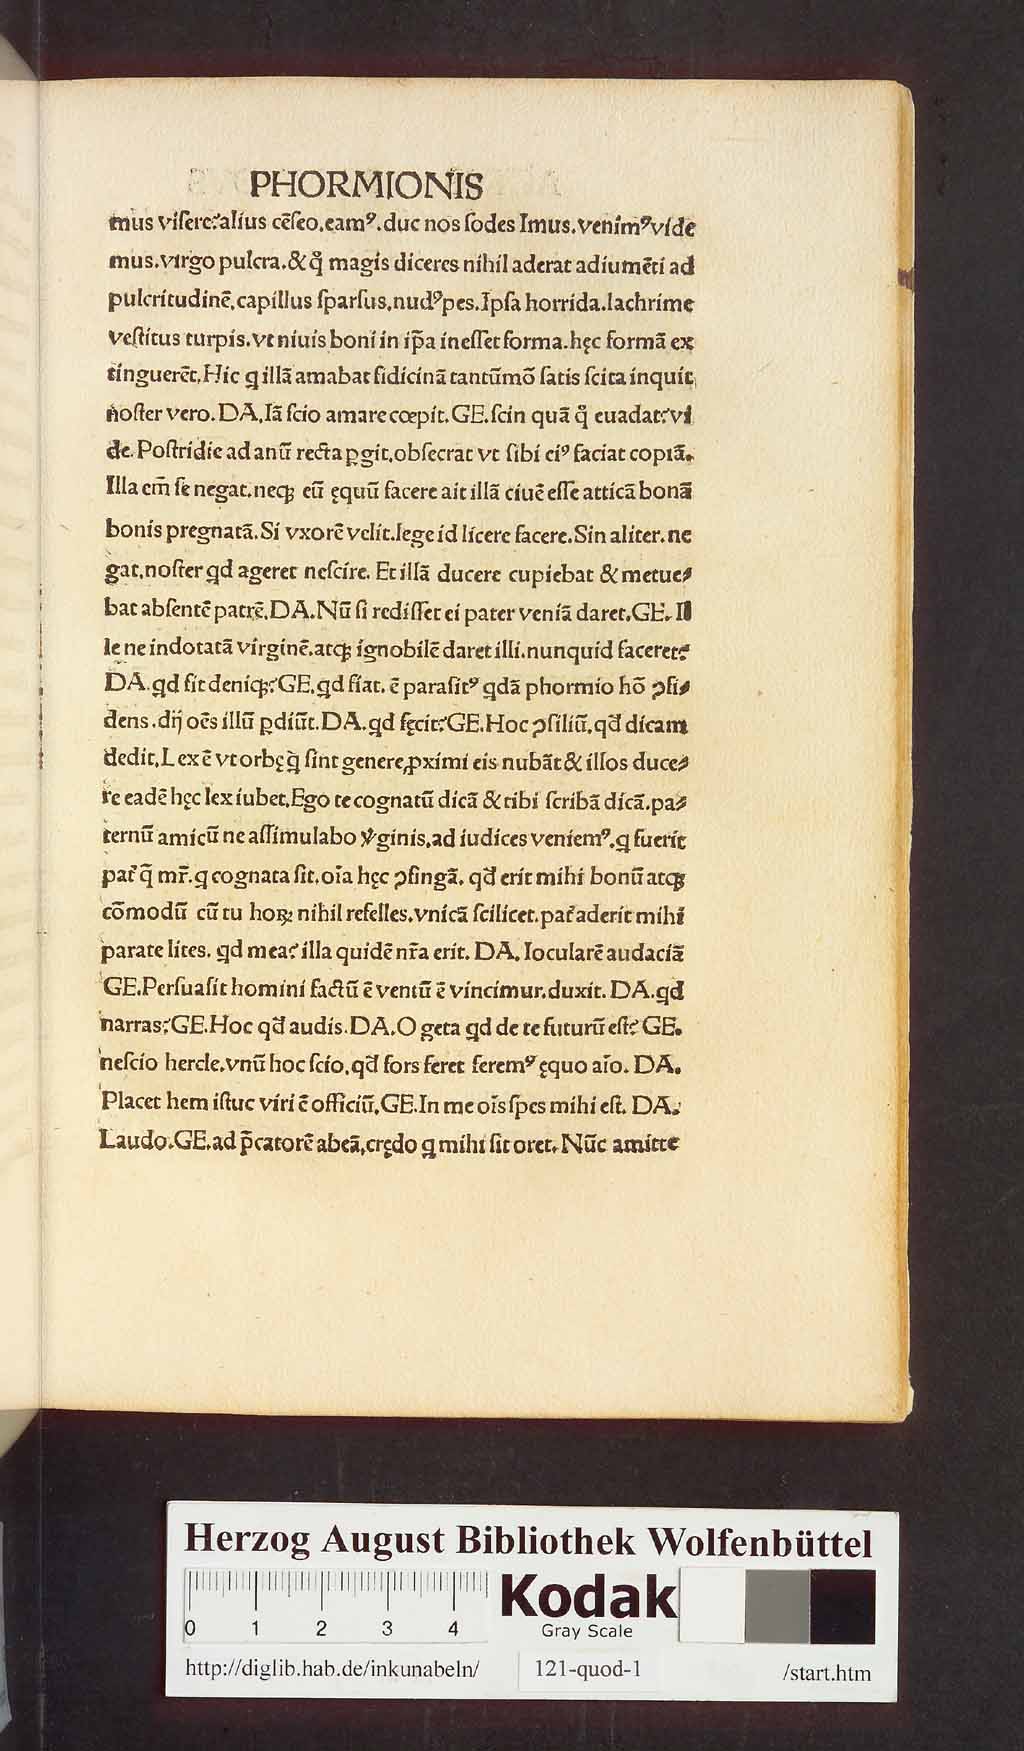 PHORMIONIS
mus viſere?alius cēſeo.eamꝰ.duc nos ſodes Imus.venimꝰvide
mus.virgo pulcra.&q̊ magis diceres nihil aderat adiumēti ad
pulcritudinē,capillus ſparſus,nudꝰpes.Ipſa horrida.lachrime
veſtitus turpis.vt niuis boni in ip̄a ineſſet forma.hęc formā ex
tinguerēt.Hic q illā amabat fidicinā tantūmō ſatis ſcita inquit,
noſter vero.DA.Iā ſcio amare cœpit.GE.ſcin quā q̊ euadat?vi
de.Poſtridie ad anū recta ꝑgit,obſecrat vt ſibi eiꝰ faciat copiā.
Illa em̄ ſe negat.neqꝫ eū ęquū facere ait illā ciuē eſſe atticā bonā
bonis pregnatā.Si vxorē velit.lege id licere facere.Sin aliter.ne
gat.noſter qd ageret neſcire. Et illā ducere cupiebat & metue⸗
bat abſentē patrē.DA.Nū ſi rediſſet ei pater veniā daret.GE.Il
le ne indotatā virginē.atqꝫ ignobilē daret illi.nunquid faceret?
DA.qd fit deniqꝫ?GE.qd fiat. ē paraſitꝰ qdā phormio hō ꝯfi⸗
dens.dij oēs illū ꝑdiūt.DA.qd fęcit?GE.Hoc ꝯſiliū.qđ dicam
dedit.Lex ē vt orbę q̄ ſint genere ꝓximi eis nubāt & illos duce⸗
re eadē hęc lex iubet.Ego te cognatū dicā & tibi ſcribā dicā.pa⸗
ternū amicū ne aſſimulabo v̓ginis.ad iudices veniemꝰ.q fuerit
pat̄ q̄ mr̄.q cognata ſit.oīa hęc ꝯfingā. qđ erit mihi bonū atqꝫ
cōmodū cū tu hoꝝ nihil refelles.vnicā ſcilicet.pat̄ aderit mihi
parate lites. qd mea? illa quidē nr̄a erit. DA. Iocularē audaciā
GE.Perſuaſit homini factū ē ventū ē vincimur.duxit. DA.qd
narras?GE.Hoc qđ audis.DA.O geta qd de te futurū eſt? GE.
neſcio hercle.vnū hoc ſcio,qđ fors feret feremꝰ ęquo aīo. DA.
Placet hem iſtuc viri ē officiū.GE.In me oīs ſpes mihi eſt. DA.
Laudo.GE.ad p̄catorē abeā,crędo q mihi ſit oret.Nūc amitte
Herzog August Bibliothek Wolfenbüttel
0 1 2 3 4
Kodak
Gray Scale
http://diglib.hab.de/inkunabeln/ 121-quod-1 /start.htm